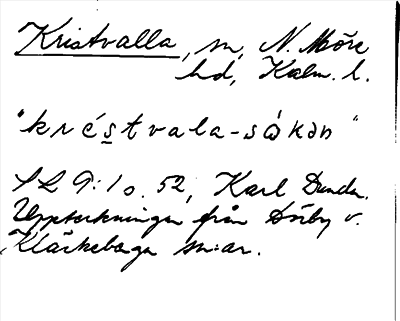 Kristvalla, sn, N. Möre
hd, Kalm. l.
"kréstvala-såkən"
SL 9:1 s. 52, Karl Dunda.
Uppteckningar från Dörby o.
Kläckeberga sn:ar.